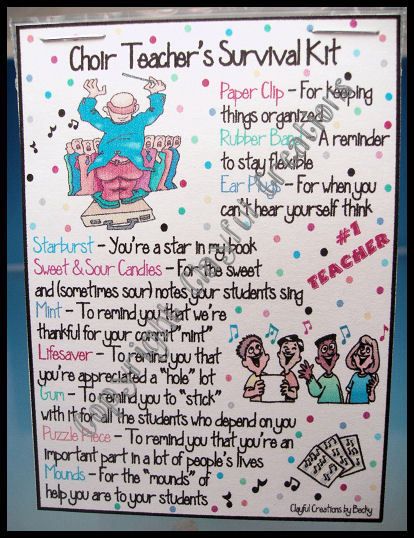 Choir Teacher's Survival Kit
Paper Clip - For keeping
things organized
Rubber Band - A reminder
to stay flexible
Ear Plugs - For when you
can't hear yourself think
Starburst - You're a star in my book
Sweet & Sour Candies - For the sweet
and (sometimes sour) notes your students sing
Mint - To remind you that we're
thankful for your commit "mint"
Lifesaver - To remind you that
you're appreciated a "hole" lot
Gum - To remind you to "stick"
with it for all the students who depend on you
Puzzle Piece - To remind you that you're an
important part in a lot of people's lives
Mounds - For the "mounds" of
help you are to your students
#1
TEACHER
Clayful Creations by Becky
Copyright Clayful Creations